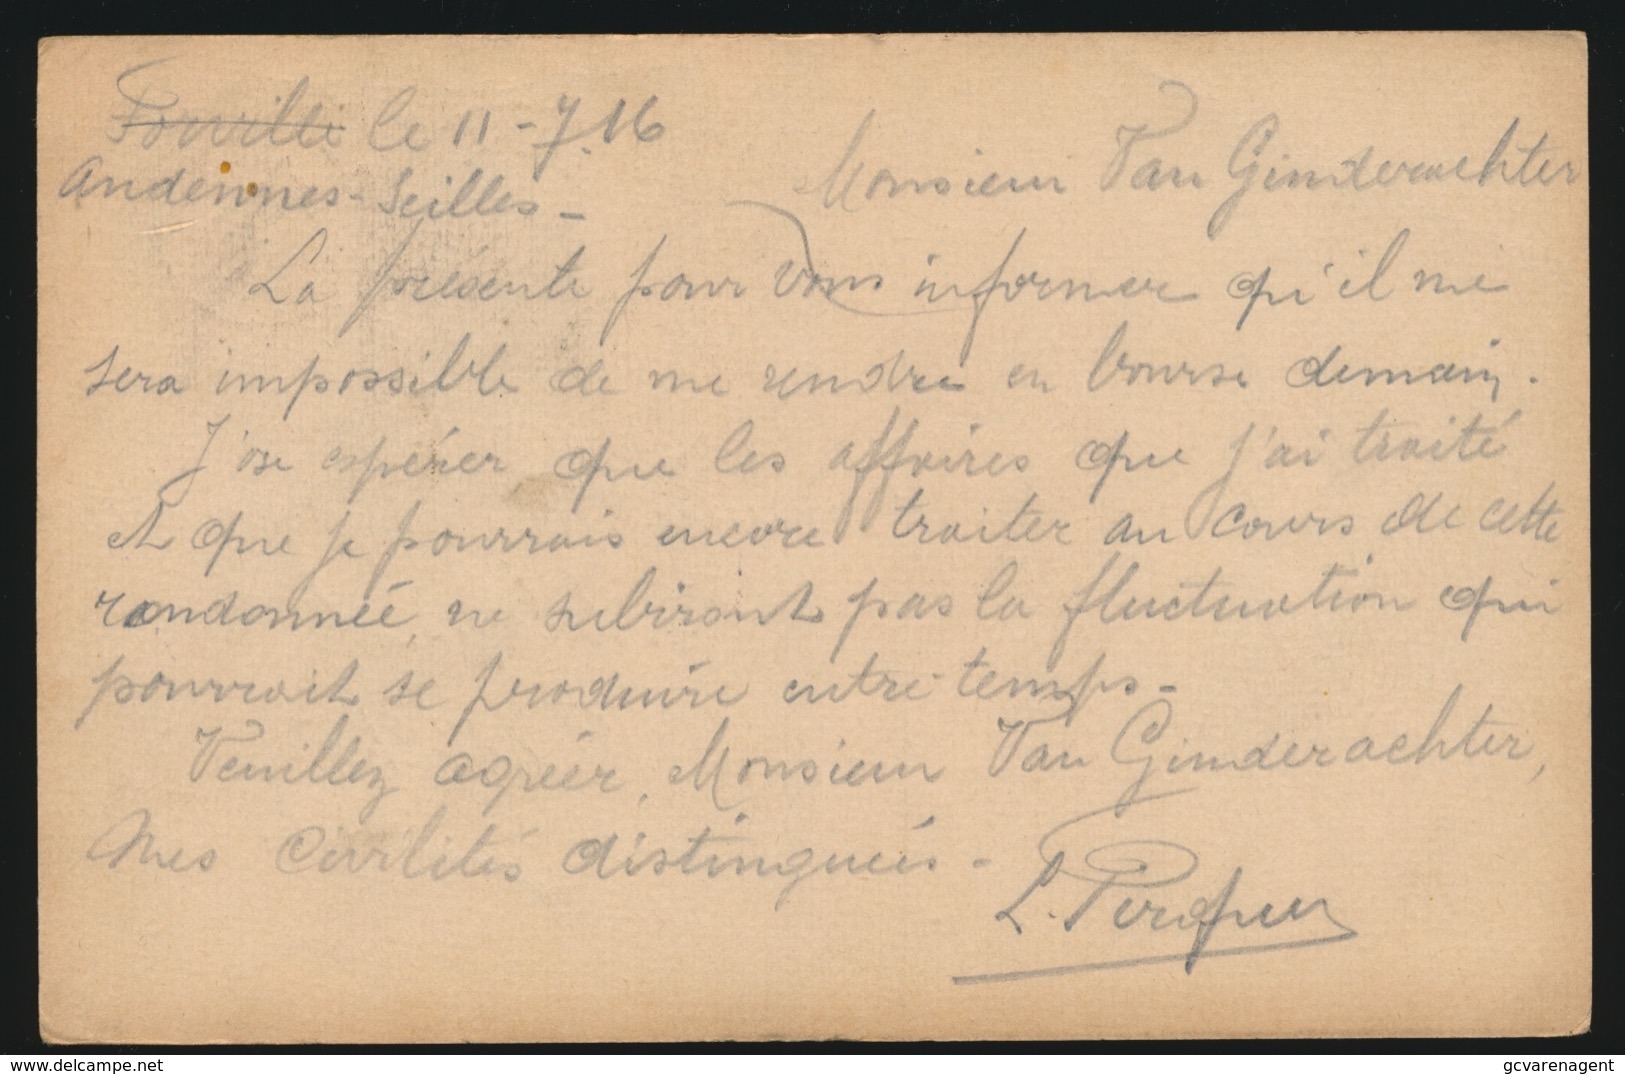 le 11-7.16
Andennes-Seilles-
Monsieur Van Ginderachter
La présente pour vous informer qu'il me
sera impossible de me rendre en bourse demain.
J'ose espérer que les affaires que j'ai traité
et que je pourrais encore traiter au cours de cette
randonnée, ne subiront pas la fluctuation qui
pourrait se produire entre-temps-
Veuillez agréer, Monsieur Van Ginderachter,
Mes Civilités distinguées-
L.
delcampe.net
gcvarenagent